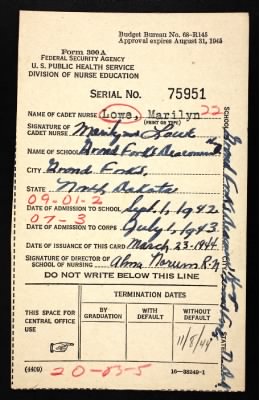 Budget Bureau No. 68-R145
Approval expires August 31, 1945
Form 300A
FEDERAL SECURITY AGENCY
U. S. PUBLIC HEALTH SERVICE
DIVISION OF NURSE EDUCATION
SERIAL NO. 75951
NAME OF CADET NURSE Lowe, Marilyn 22
(PRINT OR TYPE)
SIGNATURE OF CADET NURSE Marilyn Lowe
NAME OF SCHOOL Grand Forks Deaconess
CITY Grand Forks,
STATE North Dakota
09-01-2
DATE OF ADMISSION TO SCHOOL Sept. 1, 1942
07-3
DATE OF ADMISSION TO CORPS July 1, 1943
DATE OF ISSUANCE OF THIS CARD March-23-1944
SIGNATURE OF DIRECTOR OF SCHOOL OF NURSING Alma R.N
DO NOT WRITE BELOW THIS LINE
THIS SPACE FOR CENTRAL OFFICE USE
TERMINATION DATES
BY GRADUATION
WITH DEFAULT
WITHOUT DEFAULT
11/8/44
(4409)
20-03-5
16-38249-1
SCHOOL Grand Forks Deaconess
CITY
STATE N. Dak